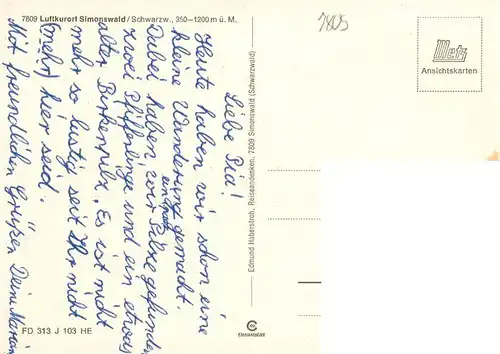 7809 Luftkurort Simonswald / Schwarzw., 350–1200 m ü. M.
7805
Metz
Ansichtskarten
Liebe Pia!
Heute haben wir schon eine
kleine Wanderung gemacht.
Dabei haben wir Pilze gefunden
ein paar
zwei Pfifferlinge und ein etwas
alter Birkenpilz. Es ist nicht
mehr so lustig seit Ihr nicht
(mehr) hier seid.
Mit freundlichen Grüßen Deine
Edmund Haberstroh, Reiseandenken, 7809 Simonswald (Schwarzwald)
FD 313 J 103 HE